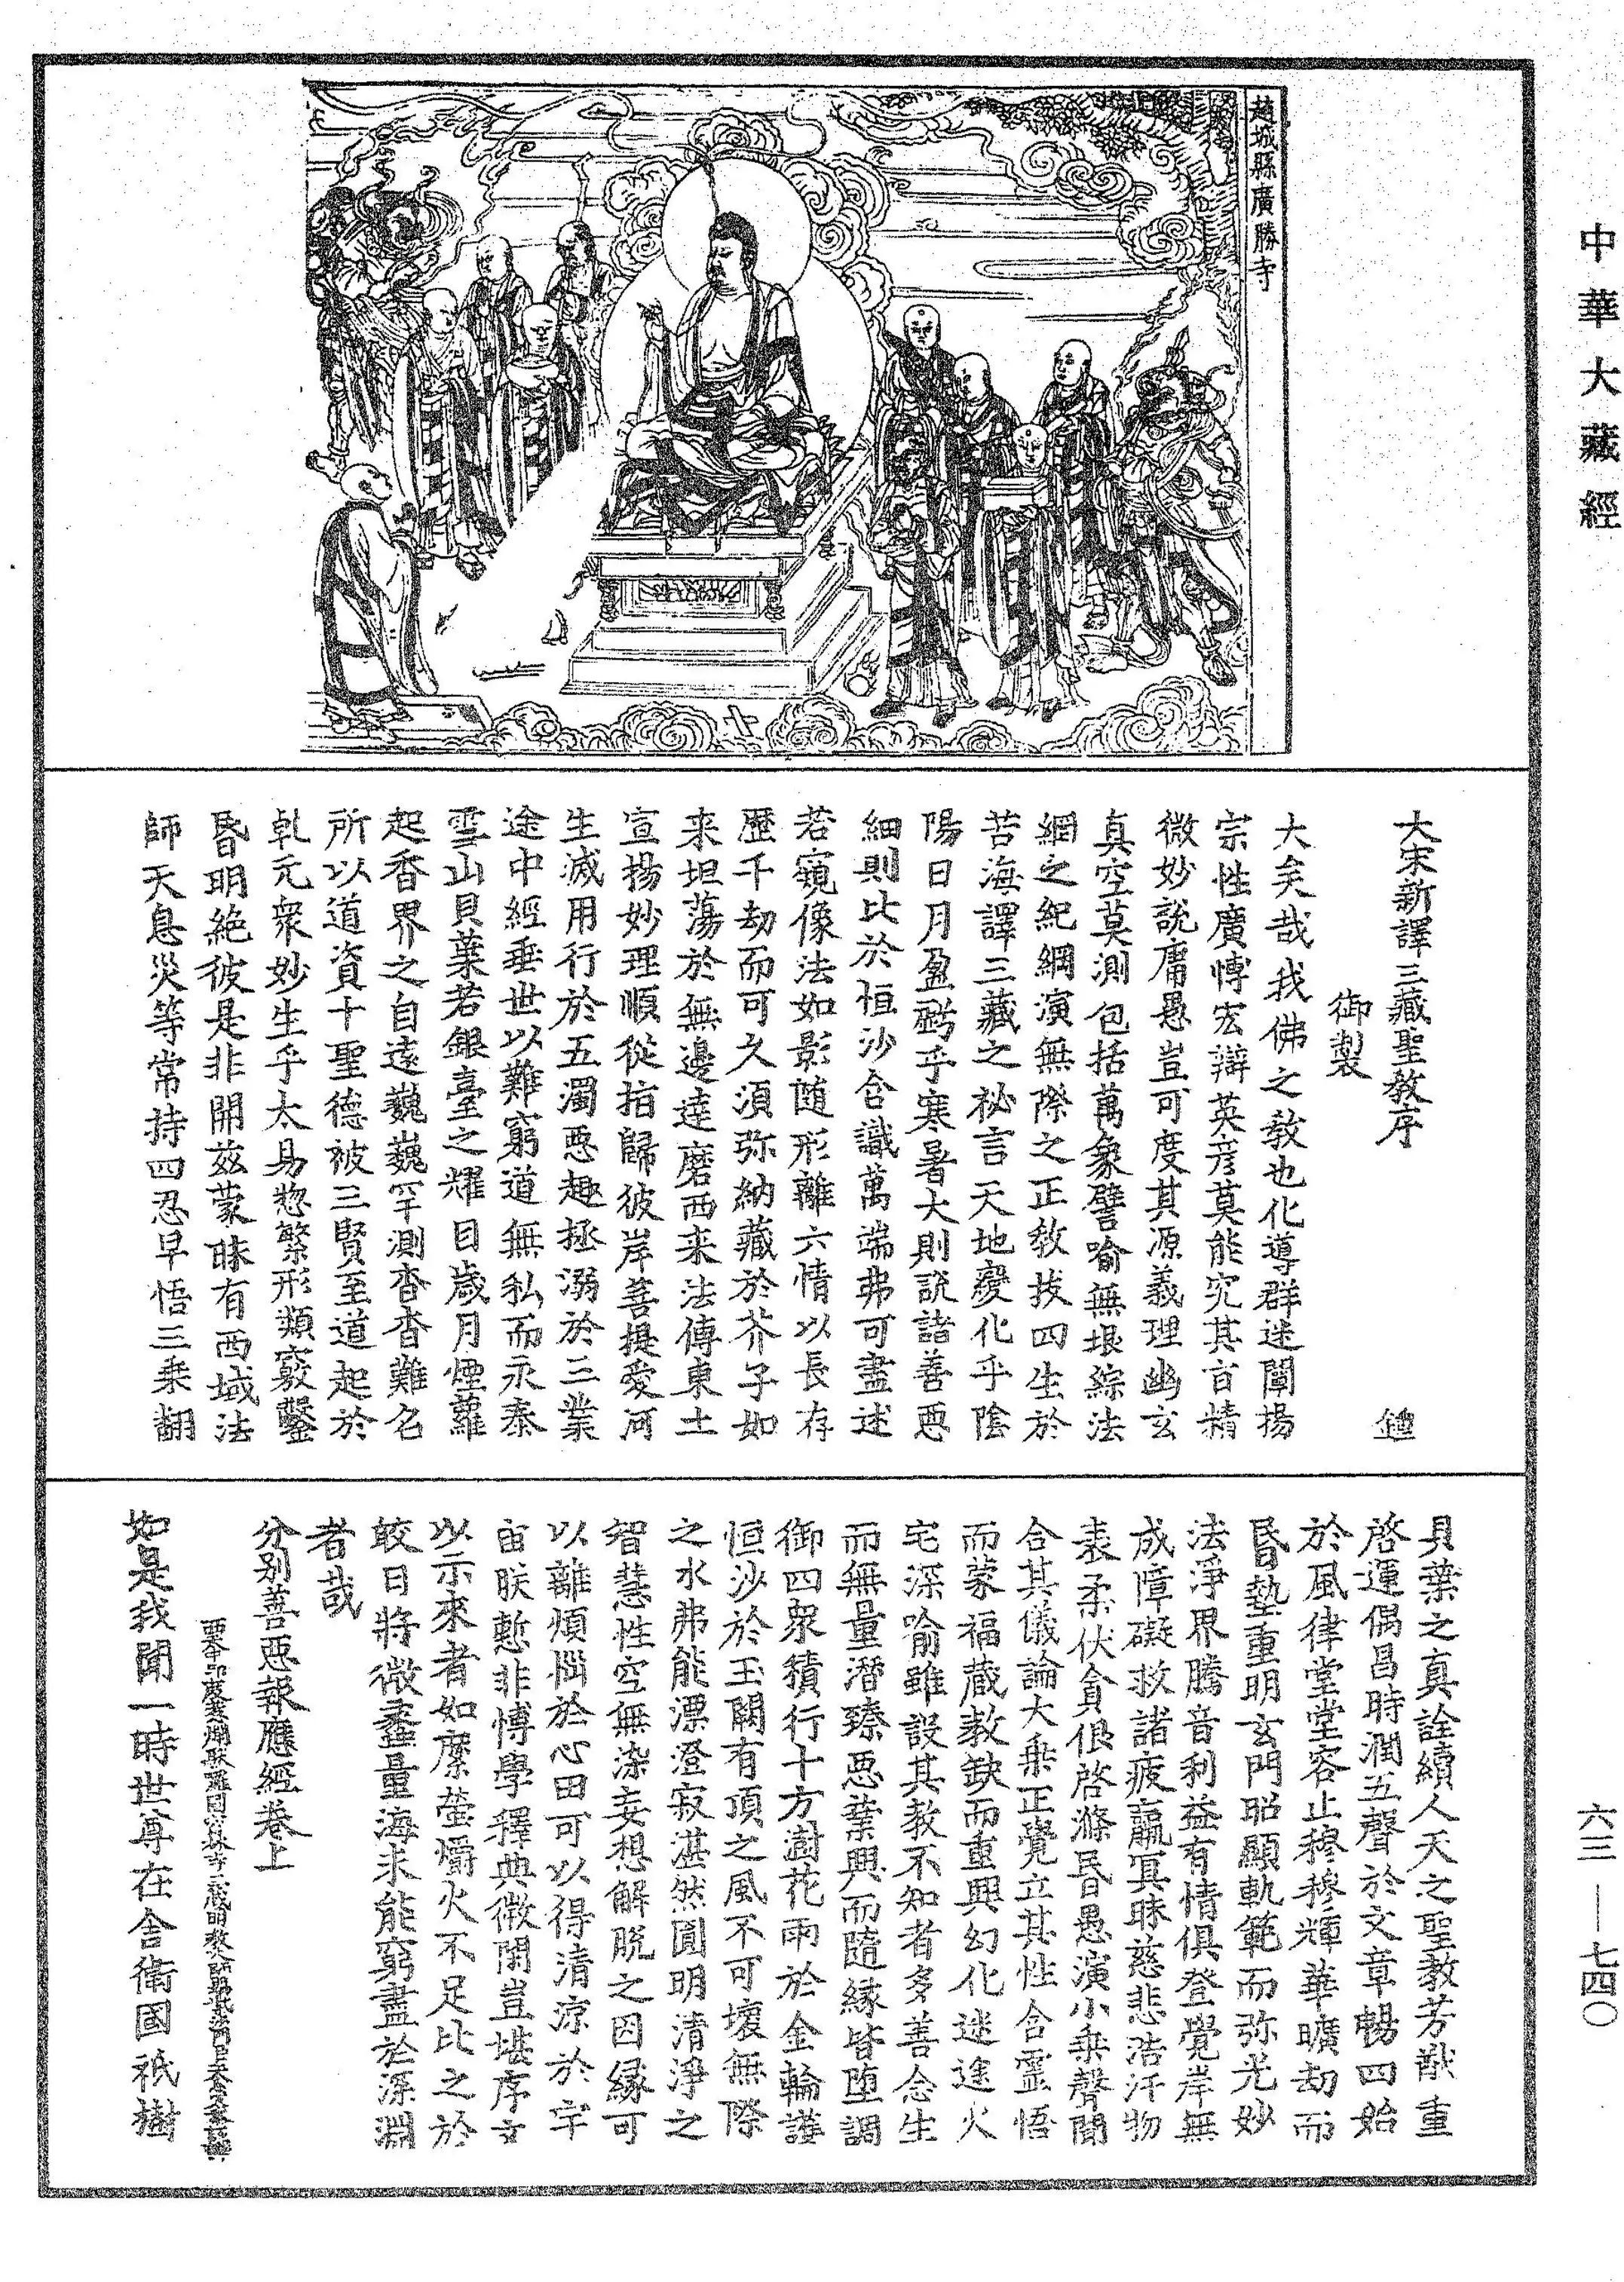 中華大藏經
趙城縣廣勝寺
大宋新譯三藏聖教序
鍾
御製
大矣哉我佛之教也化導群迷闡揚
宗性廣博宏辯英彦莫能究其旨精
微妙說庸愚豈可度其源義理幽玄
真空莫測包括萬象譬喻無垠綜法
網之紀綱演無際之正教拔四生於
苦海譯三藏之祕言天地變化乎陰
陽日月盈虧乎寒暑大則說諸善惡
細則比於恒沙含識萬端弗可盡述
若窺像法如影隨形離六情以長存
歷千劫而可久須弥納藏於芥子如
来坦蕩於無邊達磨西来法傳東土
宣揚妙理順從指歸彼岸菩提愛河
生滅用行於五濁惡趣拯溺於三業
途中經垂世以難窮道無私而永泰
雪山貝葉若銀臺之耀目歲月煙蘿
起香界之自遠巍巍罕測杳杳難名
所以道資十聖德被三賢至道起於
乹元衆妙生乎太易惣繁形類竅鑿
昏明絶彼是非開兹蒙昧有西域法
師天息災等常持四忍早悟三乘翻
貝葉之真詮續人天之聖教芳猷重
啓運偶昌時潤五聲於文章暢四始
於風律堂堂容止穆穆輝華曠劫而
昏墊重明玄門昭顯軌範而弥光妙
法淨界騰音利益有情俱登覺岸無
成障礙救諸疲羸冥昧慈悲浩汗物
表柔伏貪佷啓滌昏愚演小乘聲聞
合其儀論大乘正覺立其性含靈悟
而蒙福藏教缺而重興幻化迷途火
宅深喻雖設其教不知者多善念生
而無量潛臻惡業興而隨緣皆堕調
御四衆積行十方澍花雨於金輪護
恒沙於玉闕有頂之風不可壞無際
之水弗能漂澄寂湛然圓明清淨之
智慧性空無染妄想解脫之因緣可
以離煩惱於心田可以得清涼於宇
宙朕慙非博學釋典微閑豈堪序文
以示來者如縻螢爝火不足比之於
皎日將微蠡量海求能窮盡於深淵
者哉
分别善惡報應經卷上
如是我聞一時世尊在舍衛國祇樹
六三—七四〇